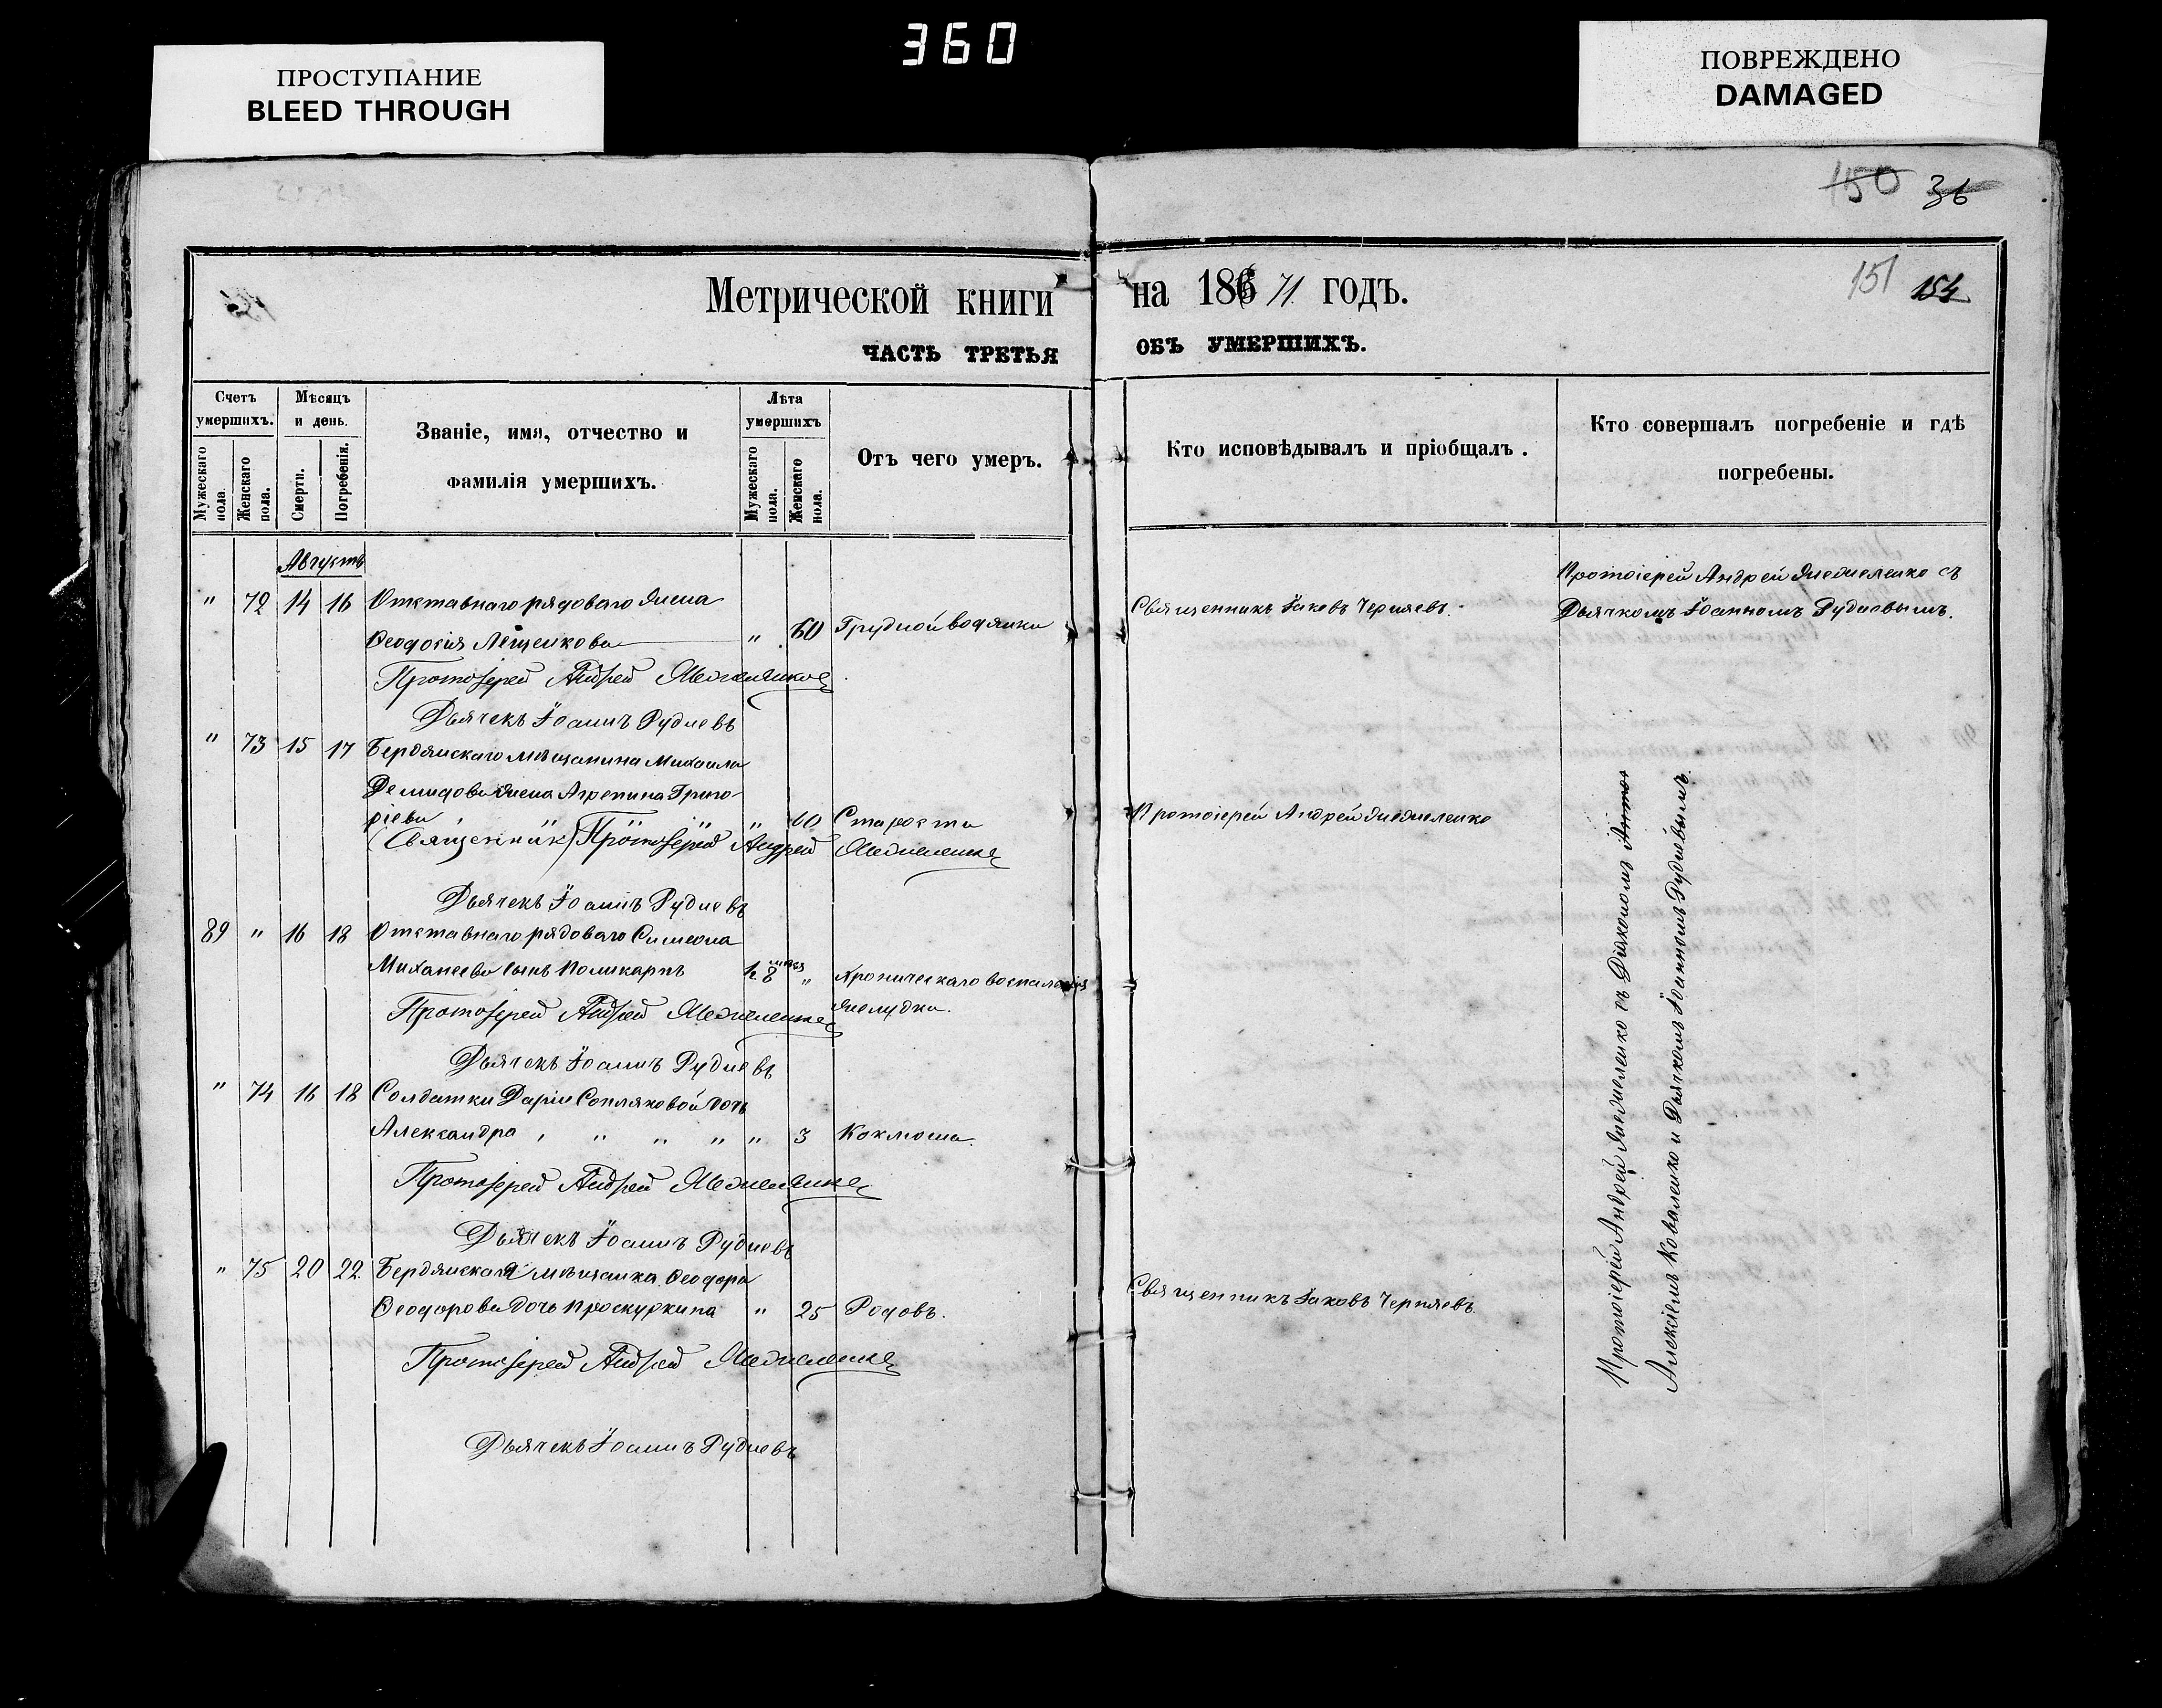 360
ПРОСТУПАНИЕ
BLEED THROUGH
ПОВРЕЖДЕНО
DAMAGED
150 36
151 154
Метрической книги на 1871 годъ.
ЧАСТЬ ТРЕТЬЯ ОБЪ УМЕРШИХЪ.
Счетъ умершихъ.
Мужескаго пола.
Женскаго пола.
Мѣсяцъ и день.
Смерти.
Погребенія.
Званіе, имя, отчество и
фамилія умершихъ.
Лѣта умершихъ
Мужескаго пола.
Женскаго пола.
Отъ чего умеръ.
Кто исповѣдывалъ и пріобщалъ.
Кто совершалъ погребеніе и гдѣ
погребены.
Августъ
" 72 14 16 Отставнаго рядоваго жена
Ѳеодосія Лещенкова " 60 Грудной водянки
Священникъ Іаковъ Черняевъ.
Протоіерей Андрей Межеленко съ
Дьячкомъ Іоанномъ Рудневымъ.
Протоіерей Андрей Межеленко
Дьячекъ Іоаннъ Рудневъ
" 73 15 17 Бердянскаго мѣщанина Михаила
Демидова жена Агрепина Григо-
ріева " " " " " 60 Старости
Протоіерей Андрей Межеленко
(Священник) Протоіерей Андрей Межеленко
Дьячекъ Іоаннъ Рудневъ
89 " 16 18 Отставнаго рядоваго Симеона
Миханеева сынъ Поликарпъ 8 мѣсяц " Хроническаго воспаленія
желудка.
Протоіерей Андрей Межеленко
Дьячекъ Іоаннъ Рудневъ
" 74 16 18 Солдатки Даріи Сопляковой дочь
Александра , " " " " 3 Коклюша.
Протоіерей Андрей Межеленко
Дьячекъ Іоаннъ Рудневъ
" 75 20 22 Бердянская мѣщанка Ѳеодора
Ѳеодорова дочь Проскуркина " 25 Родовъ.
Священникъ Іаковъ Черняевъ.
Протоіерей Андрей Межеленко
Дьячекъ Іоаннъ Рудневъ
Протоіерей Андрей Межеленко съ Діакономъ
Алексіемъ Коваленко и Дьячкомъ Іоанномъ Рудневымъ.